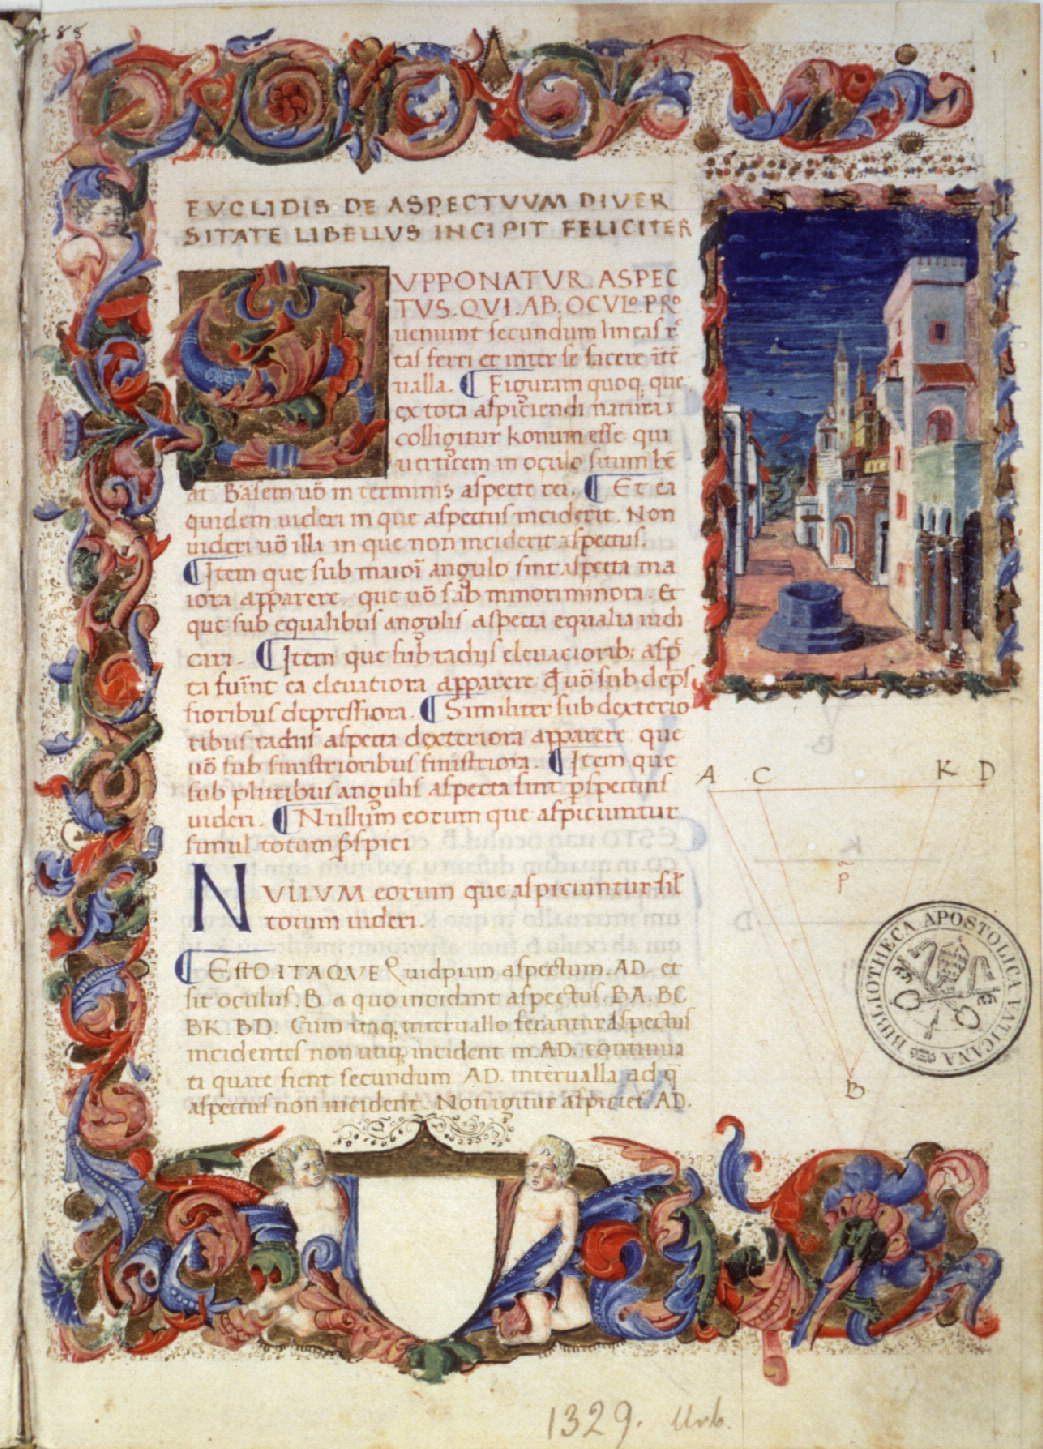 485
EVCLIDIS DE ASPECTVVM DIVER
SITATE LIBELLVS INCIPIT FELICITER
SVPPONATVR ASPEC
TVS. QVI. AB. OCVLo. PRo
ueniunt secundum lineas
tas ferri et inter se facere
ualla. ¶ Figuram quoq; que
ex tota aspiciendi natura
colligitur konum esse qui
uerticem in oculo situm
at. Basem uõ in terminis aspecte rei. ¶ Et ea
quidem uideri in que aspectus inciderit. Non
uideri uõ illa in que non inciderit aspectus.
¶ Item que sub maiori angulo sint aspecta ma
iora apparere. que uõ sub minori minora. Et
que sub equalibus angulis aspecta equalia iudi
cari. ¶ Item que sub radiis eleuatiorib;
ta fuĩnt ea eleuatiora apparere q̃ uõ sub
sioribus depressiora. ¶ Similiter sub dexterio
ribus radiis aspecta dexteriora apparere que
uõ sub sinistrioribus sinistriora. ¶ Item que
sub pluribus angulis aspecta sint
uideri. ¶ Nullum eorum que aspiciuntur
simul totum
NVLLVM eorum que aspiciuntur
totum uideri.
¶ ESTO ITAQVE Quidpiam aspectum. AD. et
sit oculus. B. a quo incidant aspectus. BA. BC.
BK. BD. Cum itaq; interuallo ferantur aspectus
incidentes non utiq; incident in. AD. continua
ti quare fient secundum AD. interualla ad q̃
aspectus non incident. Non igitur aspiciet. AD.
A C K D
B
BIBLIOTHECA APOSTOLICA VATICANA
1329. Urb.